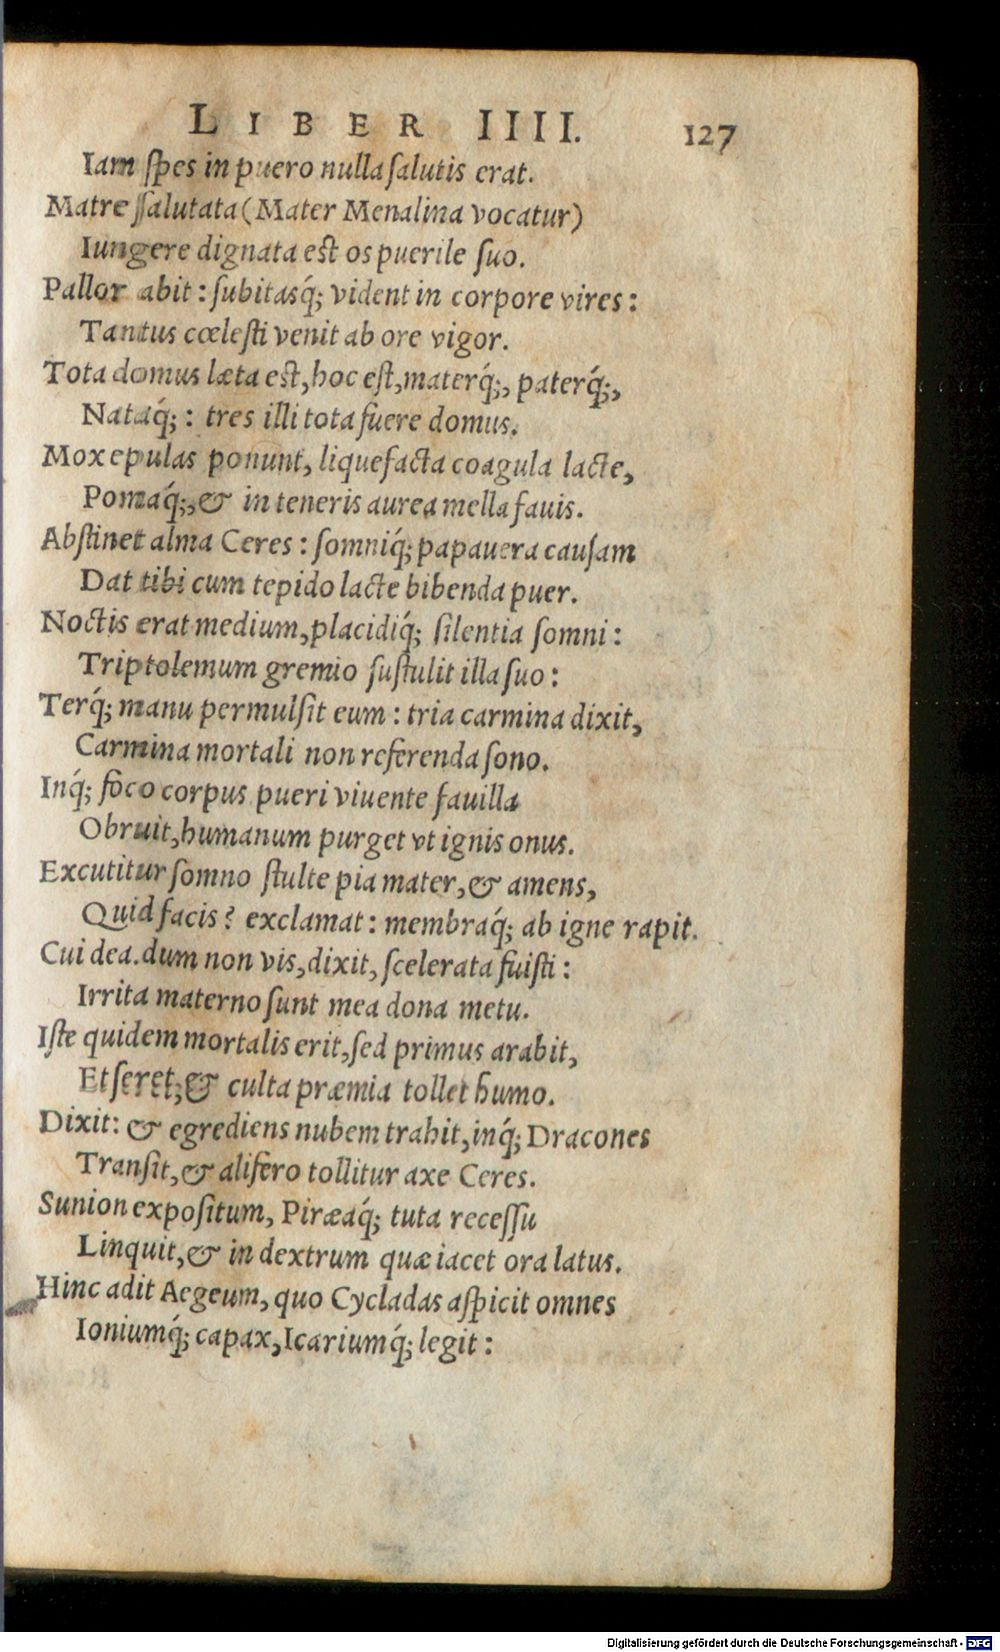 LIBER IIII. 127
Iam ſpes in puero nulla ſalutis erat.
Matre ſſalutata (Mater Menalina vocatur)
Iungere dignata est os puerile ſuo.
Pallor abit : ſubitasq́; vident in corpore vires :
Tantus cœleſti venit ab ore vigor.
Tota domus læta est, hoc eſt, materq́;, paterq́;,
Nataq́; : tres illi tota fuere domus.
Mox epulas ponunt, liquefacta coagula lacte,
Pomaq́;, & in teneris aurea mella fauis.
Abſtinet alma Ceres : ſomniq́; papauera cauſam
Dat tibi cum tepido lacte bibenda puer.
Noctis erat medium, placidiq́; ſilentia ſomni :
Triptolemum gremio ſuſtulit illa ſuo :
Terq́; manu permulſit eum : tria carmina dixit,
Carmina mortali non referenda ſono.
Inq́; foco corpus pueri viuente fauilla
Obruit, humanum purget vt ignis onus.
Excutitur ſomno ſtulte pia mater, & amens,
Quid facis? exclamat : membraq́; ab igne rapit.
Cui dea. dum non vis, dixit, ſcelerata fuiſti :
Irrita materno ſunt mea dona metu.
Iſte quidem mortalis erit, ſed primus arabit,
Et ſeret, & culta præmia tollet humo.
Dixit: & egrediens nubem trahit, inq́; Dracones
Tranſit, & alifero tollitur axe Ceres.
Sunion expoſitum, Piræaq́; tuta receſſu
Linquit, & in dextrum quæ iacet ora latus.
Hinc adit Aegeum, quo Cycladas aſpicit omnes
Ioniumq́; capax, Icariumq́; legit :
Digitalisierung gefördert durch die Deutsche Forschungsgemeinschaft - DFG